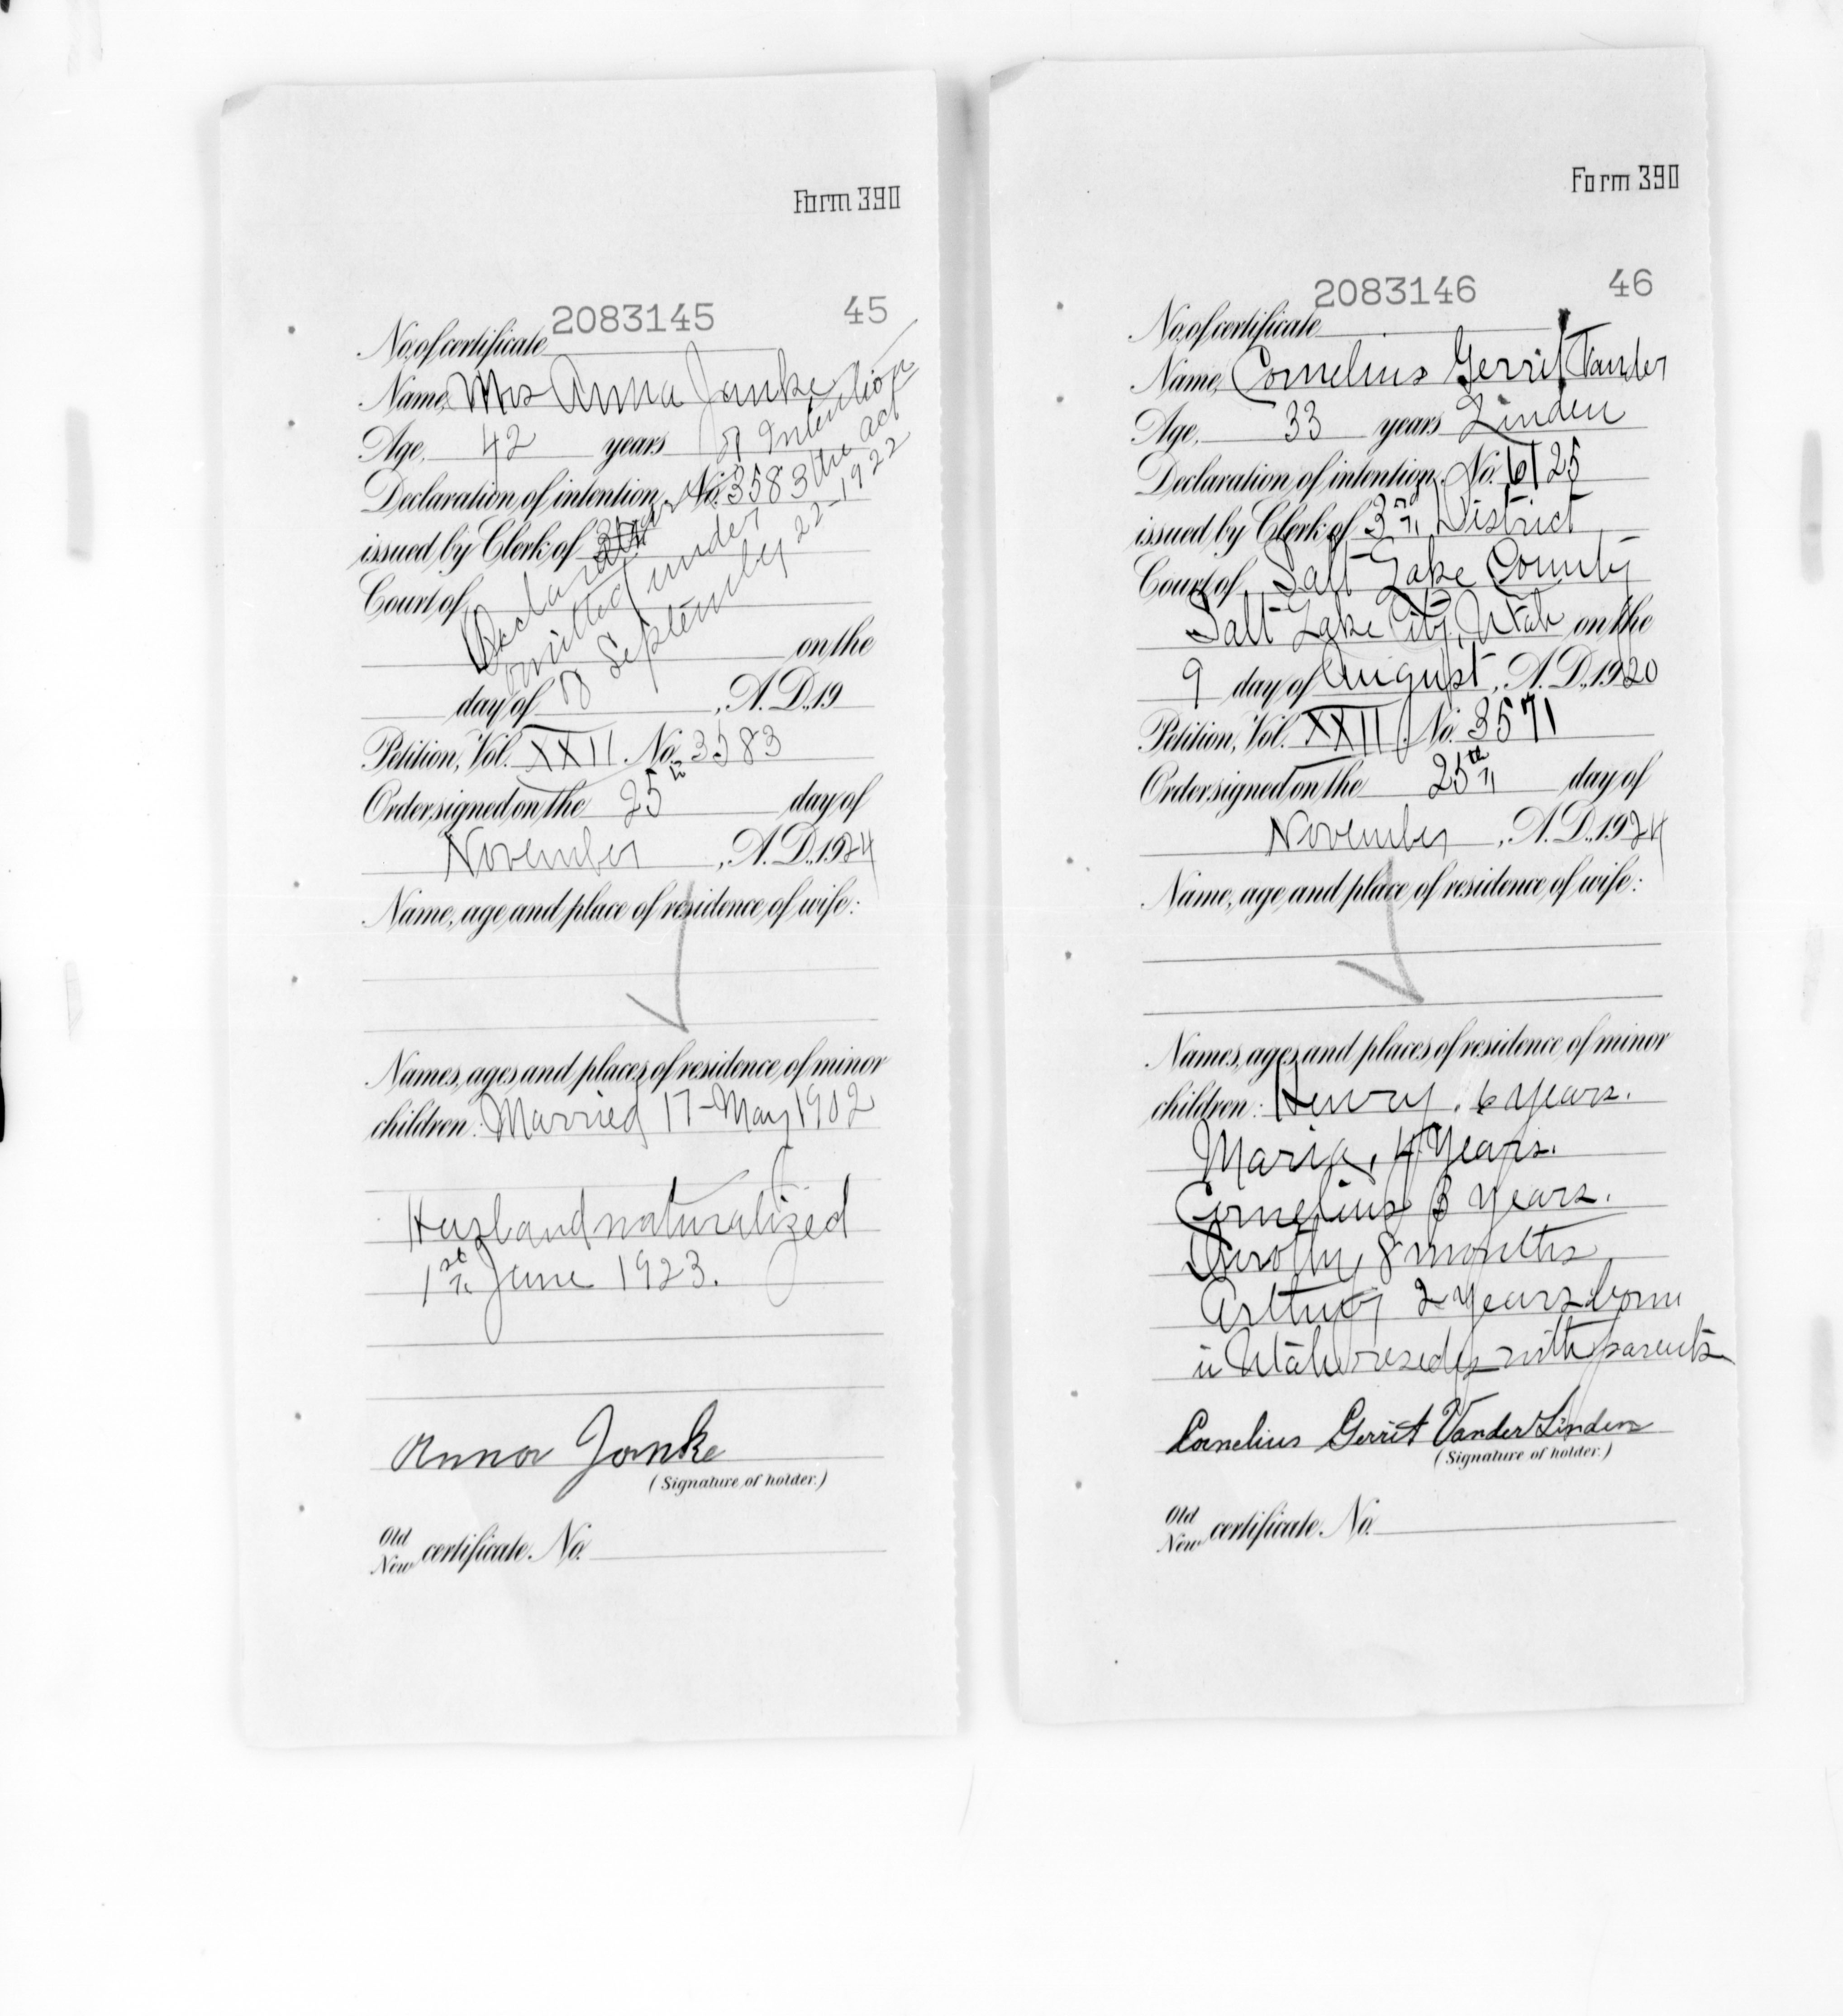 Form 390
2083145 45
No. of certificate
Name, Mrs Anna Janke
Age, 42 years
Declaration of intention, No. 3583
issued by Clerk of
Court of
Declaration of Intention
omitted under the act
of September 22-1922
on the
day of , A. D., 19
Petition, Vol. XXII. No. 3583
Order signed on the 25th day of
November, A. D., 1924
Name, age and place of residence of wife:
Names, ages and places of residence of minor
children: Married 17-May 1902
Husband naturalized
1st June 1923.
Anna Janke
(Signature of holder.)
Old
New certificate. No.
Form 390
2083146 46
No. of certificate
Name, Cornelius Gerrit Vander
Age, 33 years Linden
Declaration of intention, No. 6125
issued by Clerk of 3rd District
Court of Salt Lake County
Salt Lake City, Utah on the
9 day of August, A. D., 1920
Petition, Vol. XXII. No. 3571
Order signed on the 25th day of
November, A. D., 1924
Name, age and place of residence of wife:
Names, ages and places of residence of minor
children: Henry, 6 years.
Maria, 4 Years.
Cornelius 3 Years.
Dorothy, 8 months
Arthur 2 years born
in Utah resides with parents
Cornelius Gerrit Vander Linden
(Signature of holder.)
Old
New certificate. No.